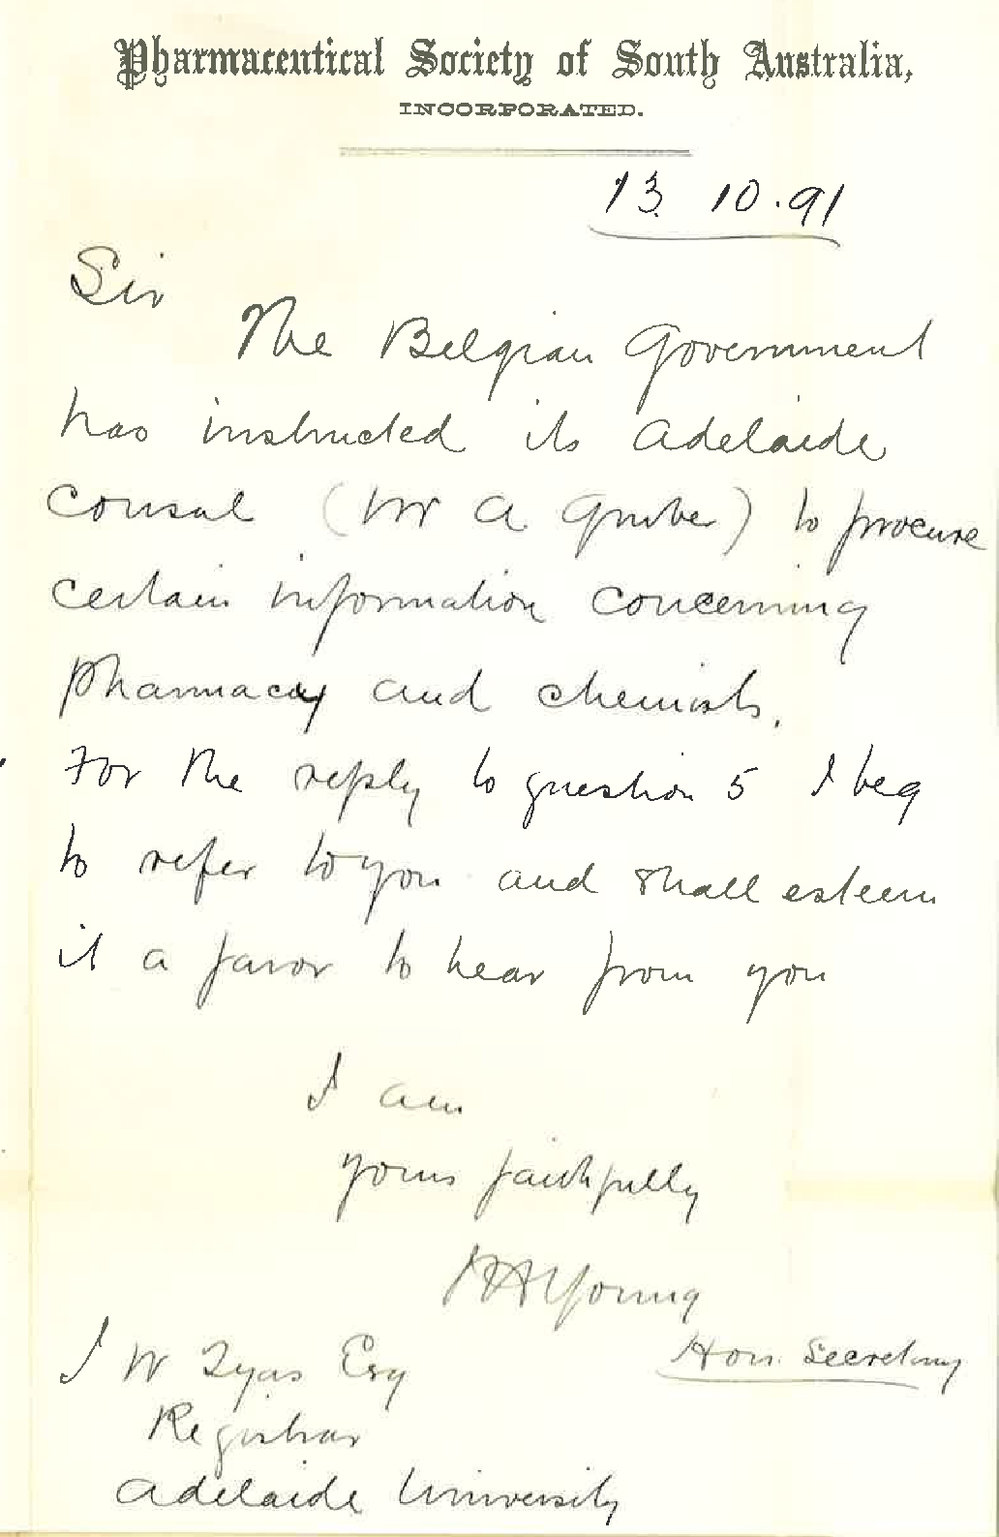 Pharmaceutical Society of South Australia,
INCORPORATED.
13. 10.91
Sir
The Belgian Government
has instructed its Adelaide
Consul (Mr A Gruber) to procure
certain information concerning
pharmacy and chemists.
For the reply to question 5 I beg
to refer to you and shall esteem
it a favor to hear from you
I am
yours faithfully
Young
Hon. Secretary
J W Tyas Esq
Registrar
Adelaide University